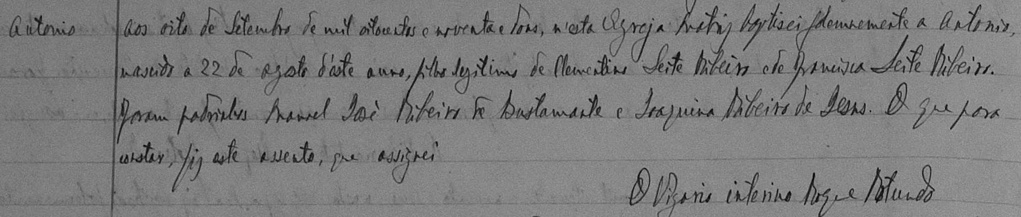 Antonio
aos oito de Setembro de mil oitocentos e noventa e dous, n'esta Egreja Matriz baptisei solemnemente a Antonio,
nascido a 22 de agosto d'este anno, filho legitimo de Clementino Leite Ribeiro e de Francisca Leite Ribeiro.
Foram padrinhos Manoel José Ribeiro de Bustamante e Joaquina Ribeiro de Jesus. O que para
constar, fiz este assento, que assignei
O Vigario interino Roque Rotundo